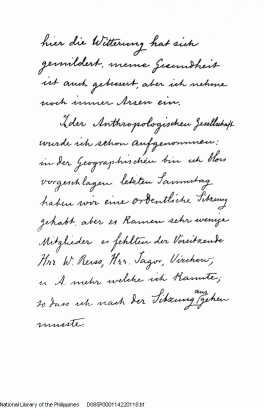 hier die Witterung hat sich
gemildert, meine Gesundheit
ist auch gebessert, aber ich nehme
noch immer Arsen ein.
der Anthropologischen Gesellschaft
wurde ich schon aufgenommen:
in der Geographischen bin ich blos
vorgeschlagen letzten Samstag
haben wir eine ordentliche Sitzung
gehabt, aber es kamen sehr wenige
Mitglieder es fehlten der Vorsitzende
Hrr W. Reiss, Hrr. Jagor, Virchow,
u A mehr welche ich kannte;
so dass ich nach der Sitzung aus gehen
musste.
National Library of the Philippines D085R000114220118.tif